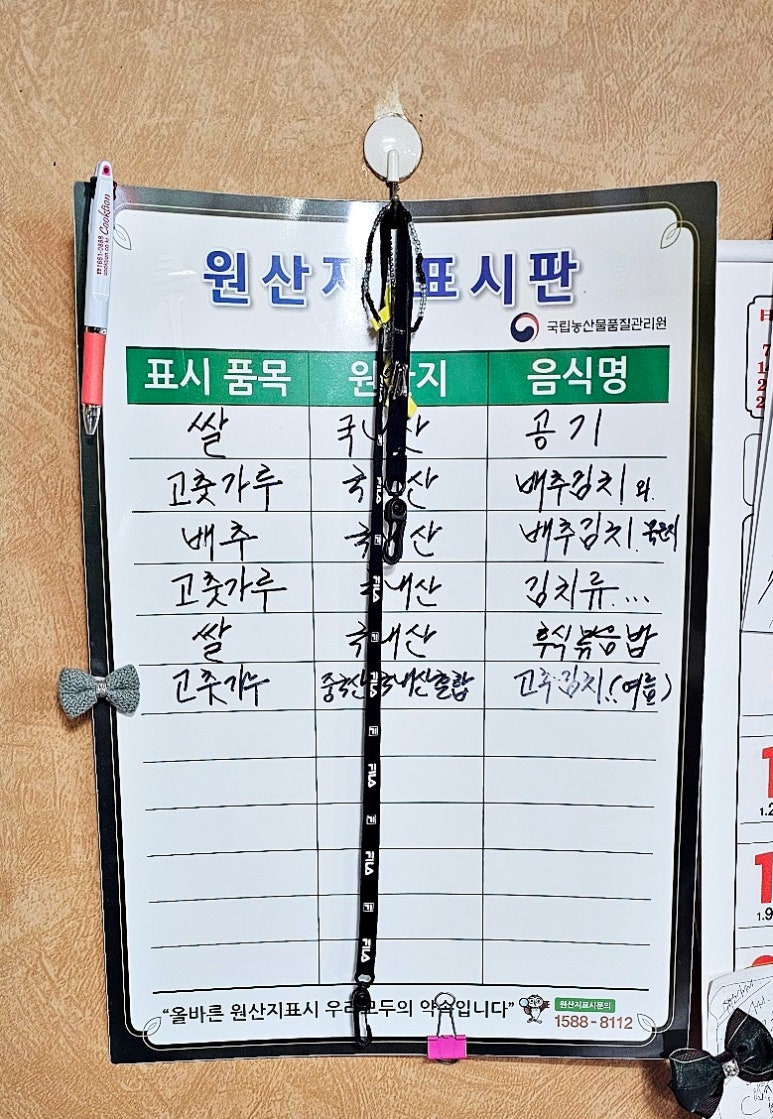 원산지 표시판
국립농산물품질관리원
표시 품목 원산지 음식명
쌀 국내산 공기
고춧가루 국내산 배추김치 와.
배추 국내산 배추김치.
고춧가루 국내산 김치류...
쌀 국내산 후식볶음밥
고춧가누 중국산 국내산혼합 고추김치.(여름)
FILA
FILA
FILA
FILA
FILA
FILA
"올바른 원산지표시 우리 모두의 약속입니다"
원산지표시문의
1588-8112
☎1661-0888 Cooktion
cooktion.co.kr